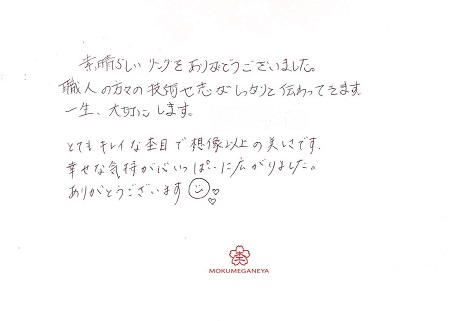 素晴らしいリングをありがとうございました。
職人の方々の技術や志がしっかりと伝わってきます
一生、大切にします。
とてもキレイな杢目で想像以上の美しさです.
幸せな気持が心いっぱいに広がりました。
ありがとうございます
杢
MOKUMEGANEYA